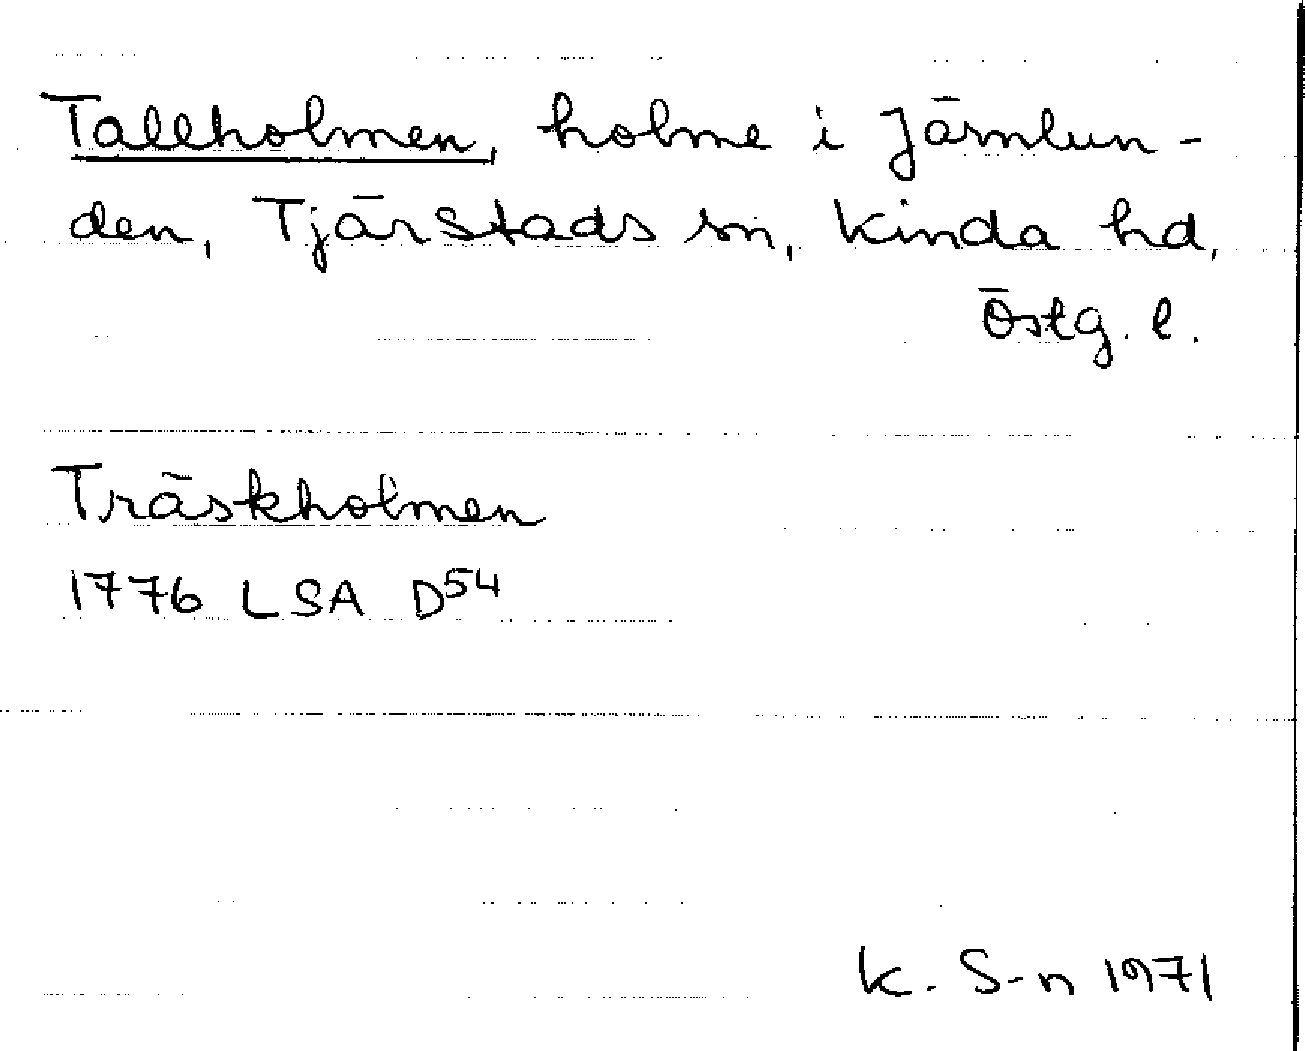 Tallholmen, holme i Järnlun-
den, Tjärstads sn, Kinda hd,
Östg. l.
Träskholmen
1776 LSA D54
K. S-n 1971